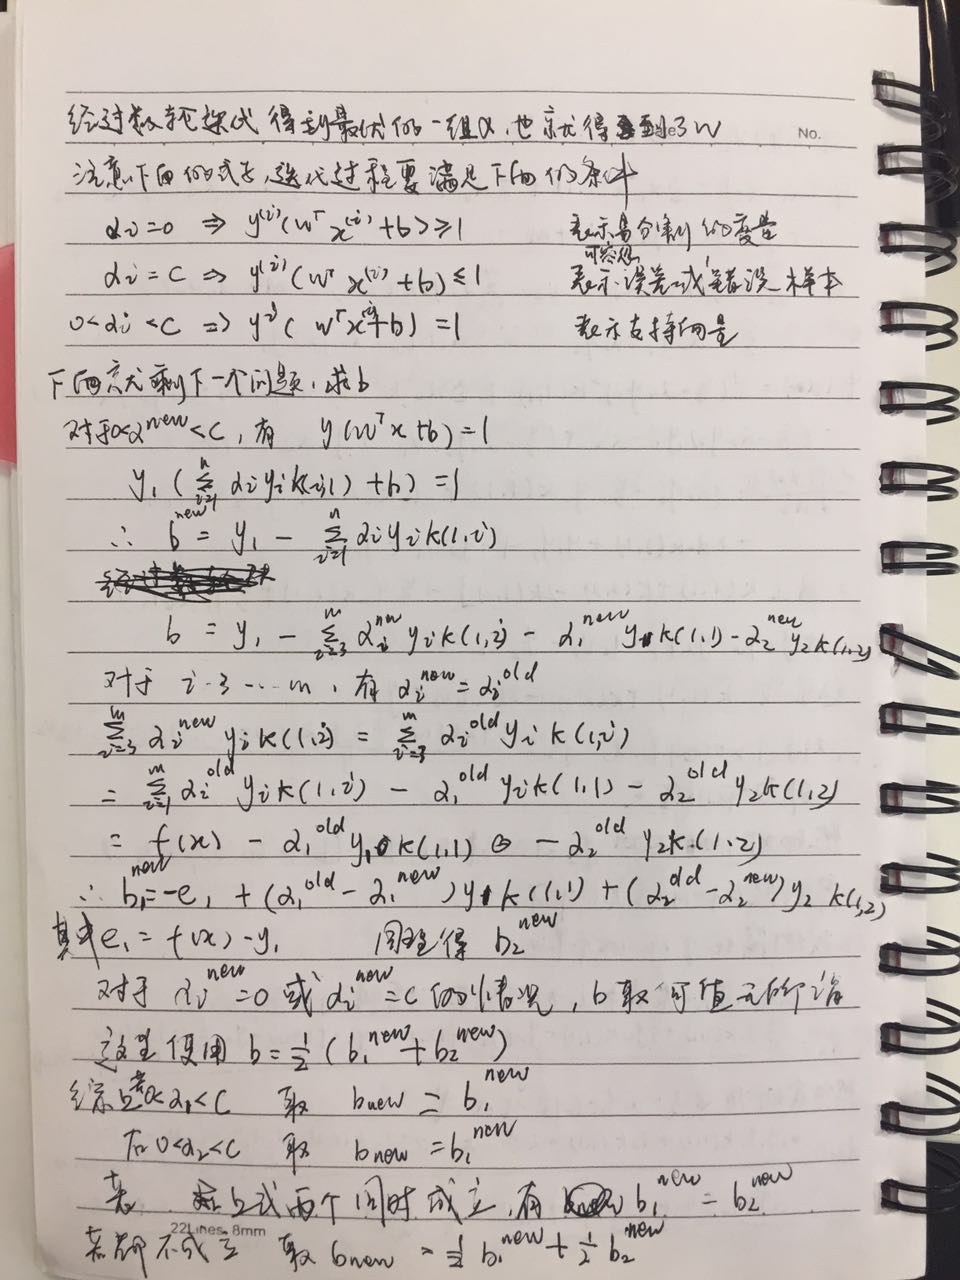 经过数轮迭代得到最优的一组α,也就得到了w
No.
注意下面的式子,迭代过程要满足下面的条件
αi=0 ⇒ y⁽ⁱ⁾(wᵀx⁽ⁱ⁾+b)≥1 表示易分割的变量
可容忍
αi=C ⇒ y⁽ⁱ⁾(wᵀx⁽ⁱ⁾+b)≤1 表示误差或错误样本
0<αi<C ⇒ yⁱ⁾(wᵀx⁽ⁱ⁾+b)=1 表示支持向量
下面就剩下一个问题,求b
对于0<α^new<C,有 y(wᵀx+b)=1
y₁(Σ_{i=1}^n αi yi k(i,1)+b)=1
∴ b^new = y₁ - Σ_{i=1}^n αi yi k(1,i)
b = y₁ - Σ_{i=3}^m αi^new yi k(1,i) - α₁^new y₁ k(1,1) - α₂^new y₂ k(1,2)
对于 i=3…m,有 αi^new = αi^old
Σ_{i=3}^m αi^new yi k(1,i) = Σ_{i=3}^m αi^old yi k(1,i)
= Σ_{i=1}^m αi^old yi k(1,i) - α₁^old yi k(1,1) - α₂^old y₂ k(1,2)
= f(x) - α₁^old y₁ k(1,1) - α₂^old y₂ k(1,2)
∴ b₁^new = -e₁ + (α₁^old - α₁^new) y₁ k(1,1) + (α₂^old - α₂^new) y₂ k(1,2)
其中 e₁ = f(x) - y₁ 同理得 b₂^new
对于 αi^new=0 或 αi^new=C 的情况,b取可值
这里使用 b=½(b₁^new+b₂^new)
综上若0<α₁<C 取 bnew = b₁^new
若0<α₂<C 取 bnew = b₁^new
若 上式两个同时成立,有 b₁^new = b₂^new
22Lines.8mm
若都不成立 取 bnew = ½b₁^new + ½b₂^new